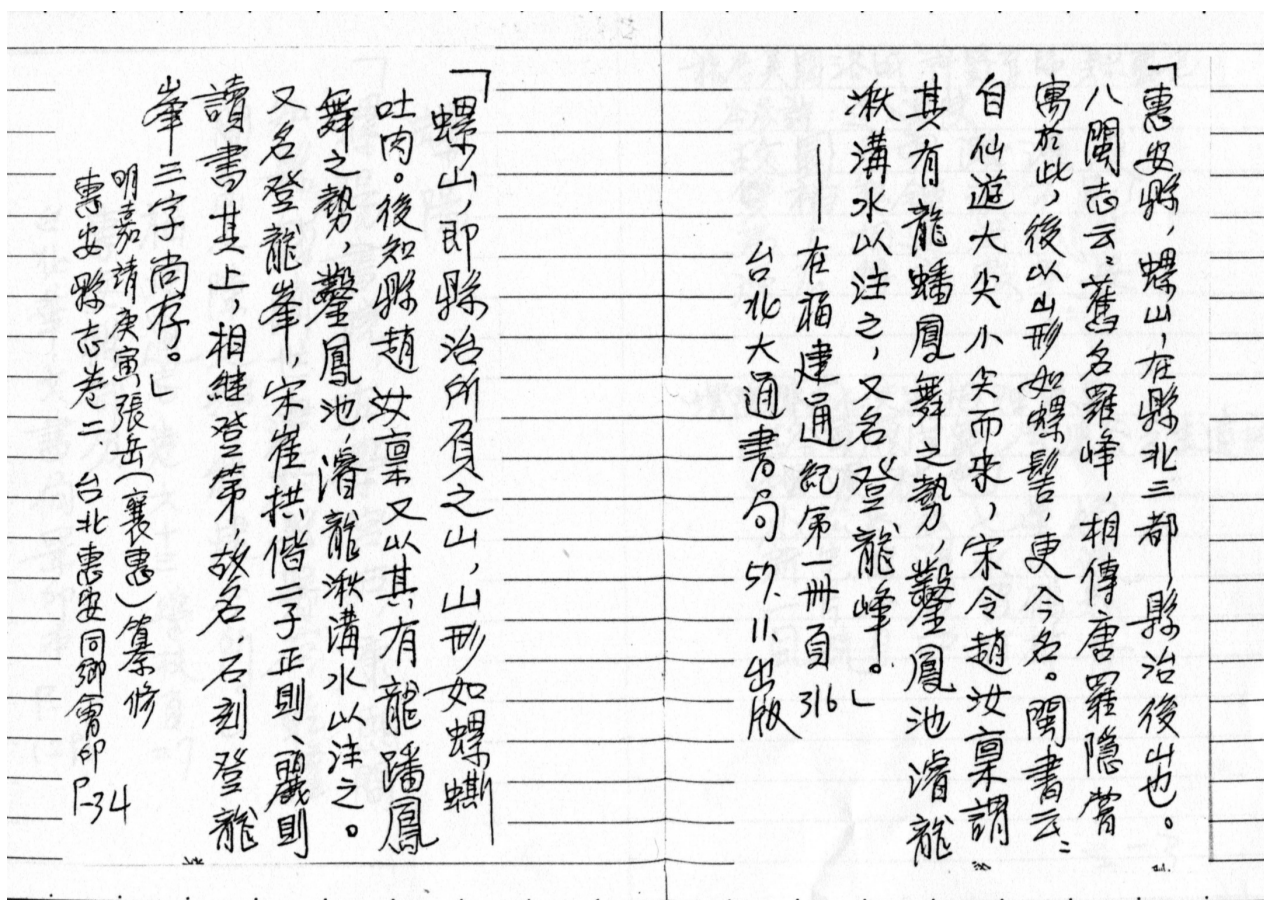 「惠安縣,螺山,在縣北三都,縣治後山也。
八閩志云:舊名羅峰,相傳唐羅隱嘗
寓於此,後以山形如螺髻,更今名。閩書云:
自仙遊大尖小尖而來,宋令趙汝稟謂
其有龍蟠鳳舞之勢,鑿鳳池濬龍
湫溝水以注之,又名登龍峰。」
—在福建通紀第一冊頁316
台北大通書局57.11.出版
「螺山,即縣治所負之山,山形如螺螄
吐肉。後知縣趙汝稟又以其有龍蹯鳳
舞之勢,鑿鳳池,濬龍湫溝水以注之。
又名登龍峯,宋崔拱偕二子正則、礪則
讀書其上,相継登第,故名,石刻登龍
峯三字尚存。」
明嘉靖庚寅張岳(襄惠)篡修
惠安縣志卷二 台北惠安同鄉會印P-34